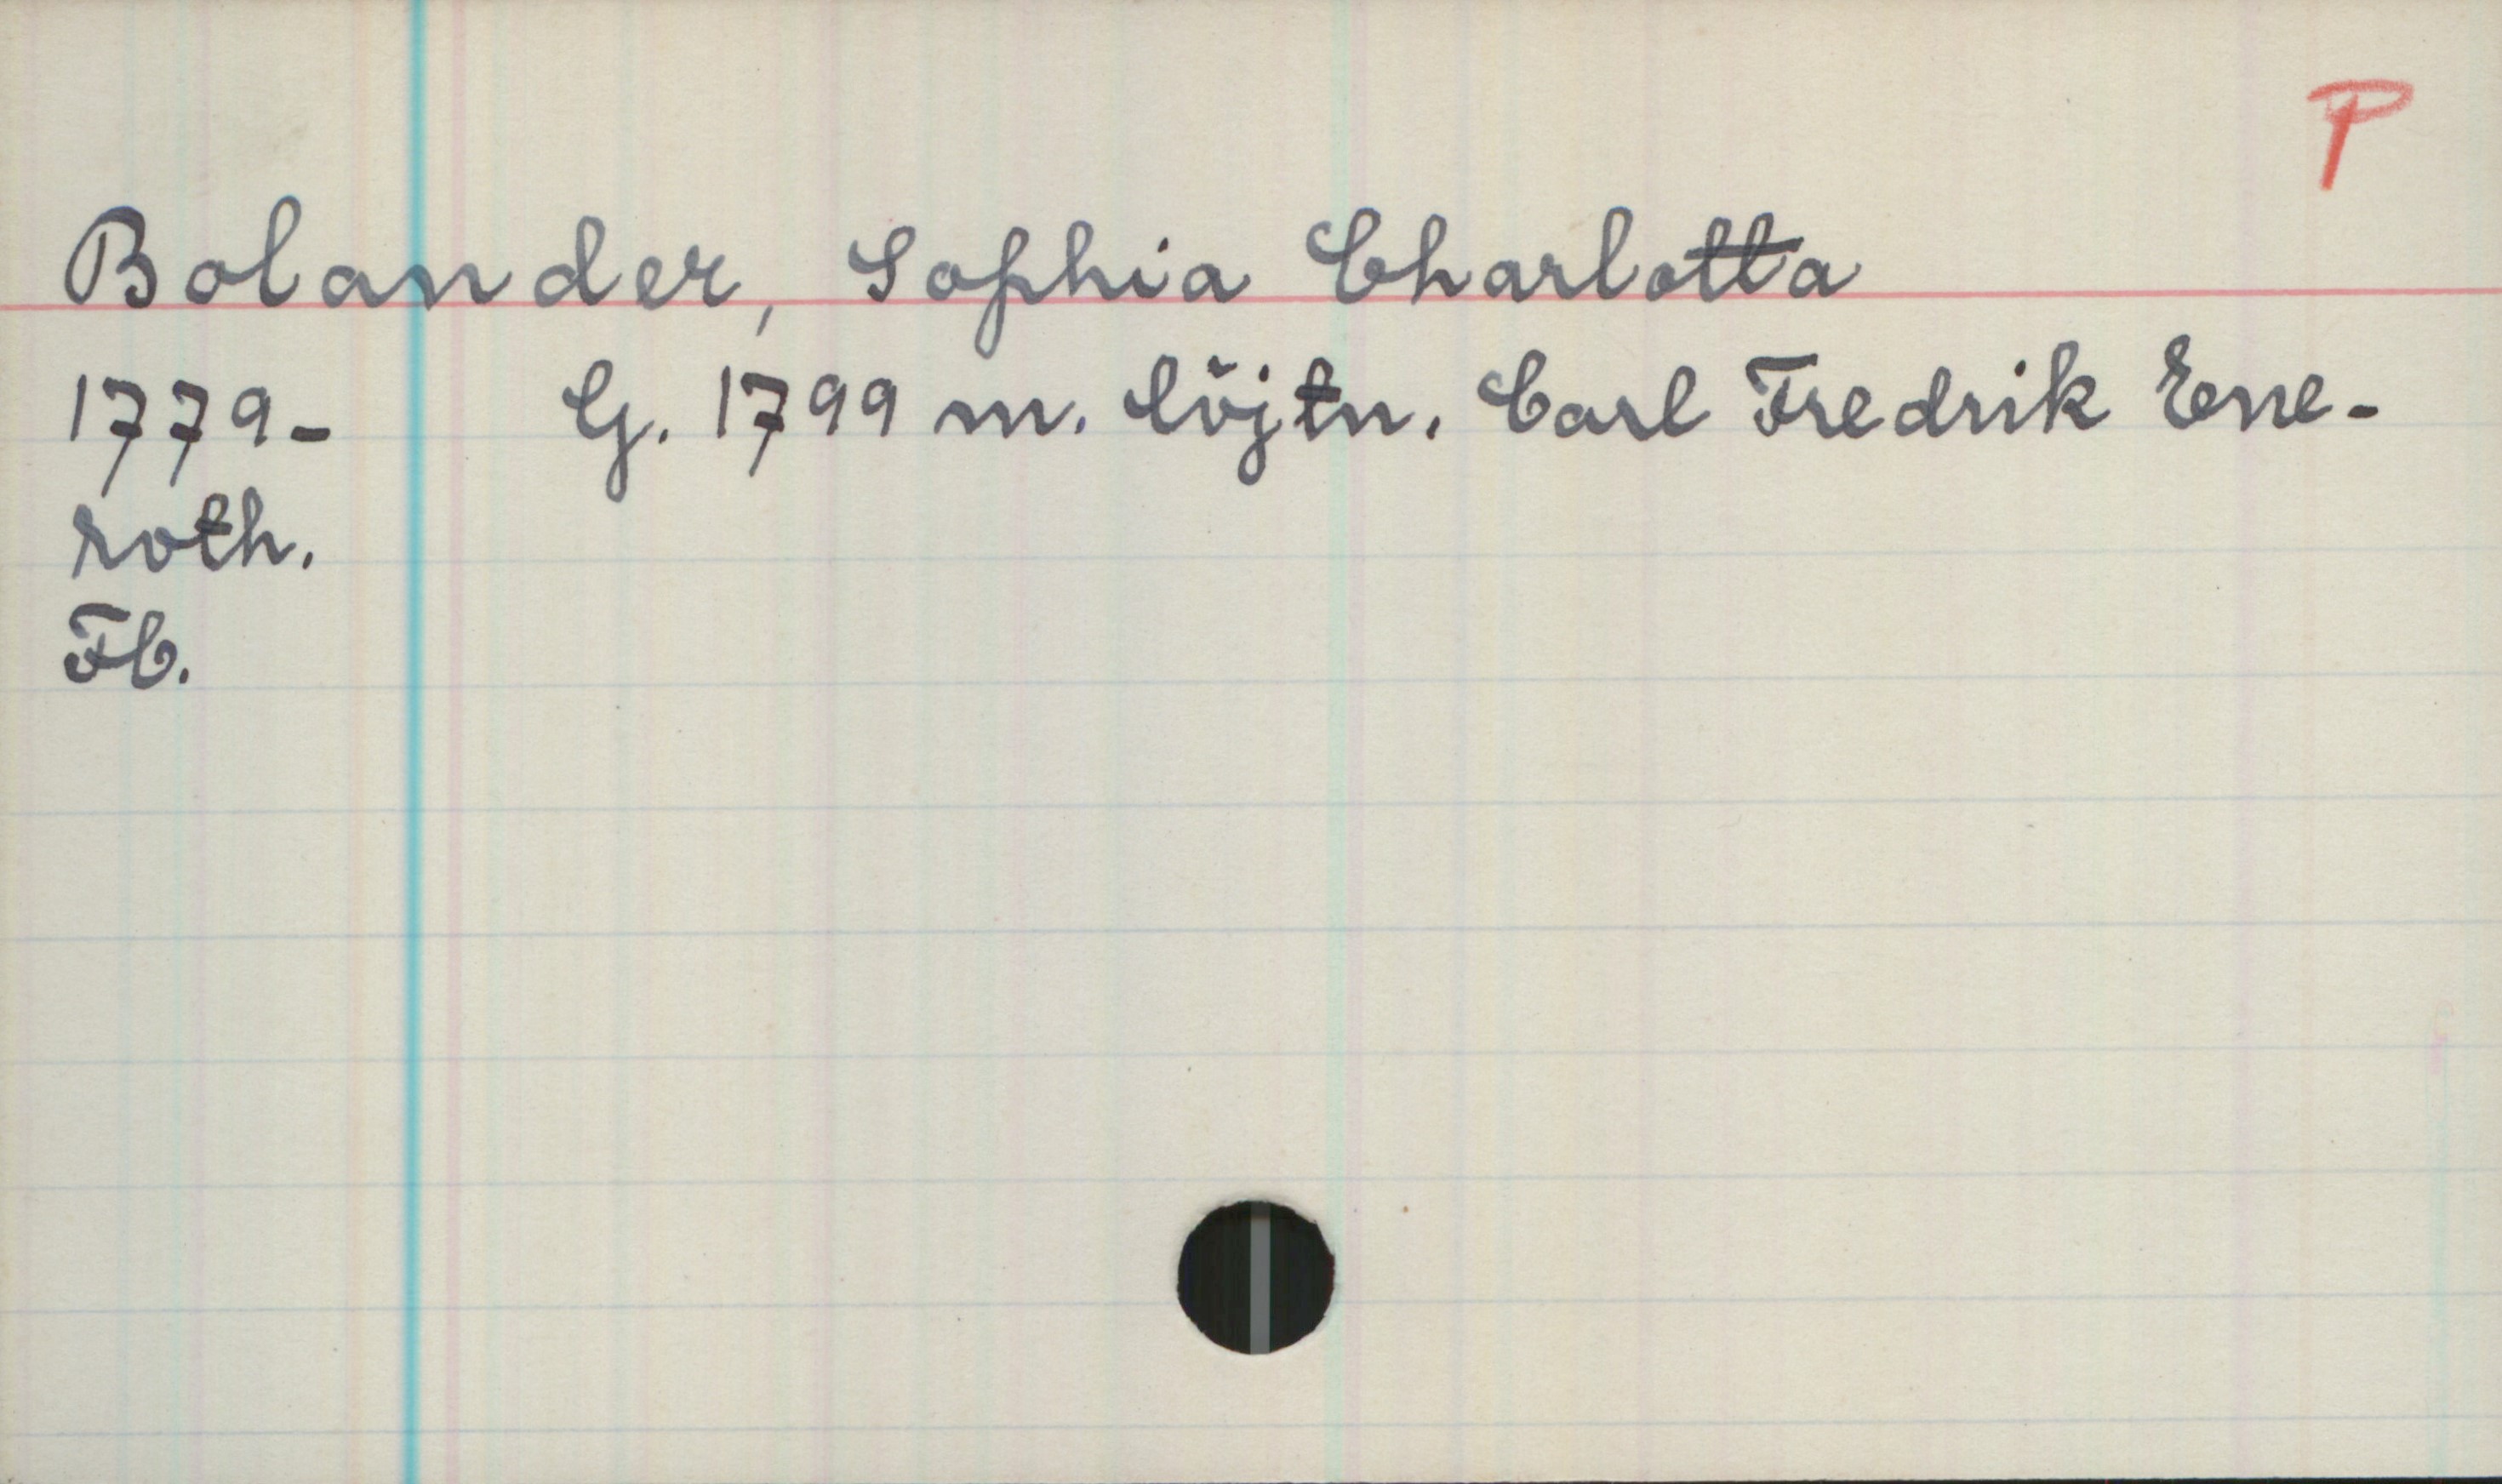 P
Bolander, Sophia Charlotta
1779- G. 1799 m. löjtn. Carl Fredrik Ene-
roth.
Fb.